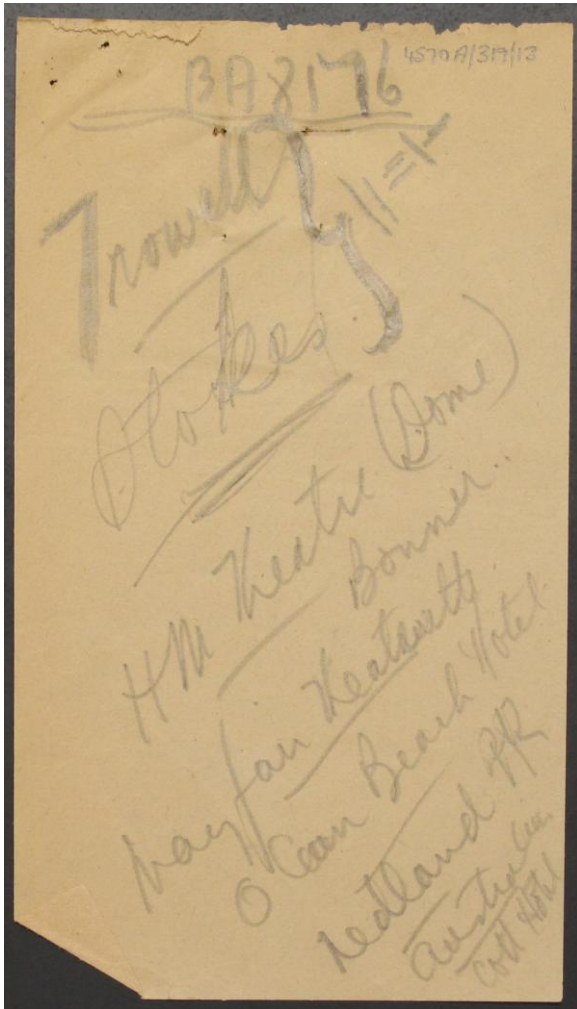 4570A/319/13
BA8176
Trowell
11=1
Stokes
HM Theatre (Dome)
Bonner..
Mayfair Theatrette
Ocean Beach Hotel
Nedland PK
Australia
Cott Hotel